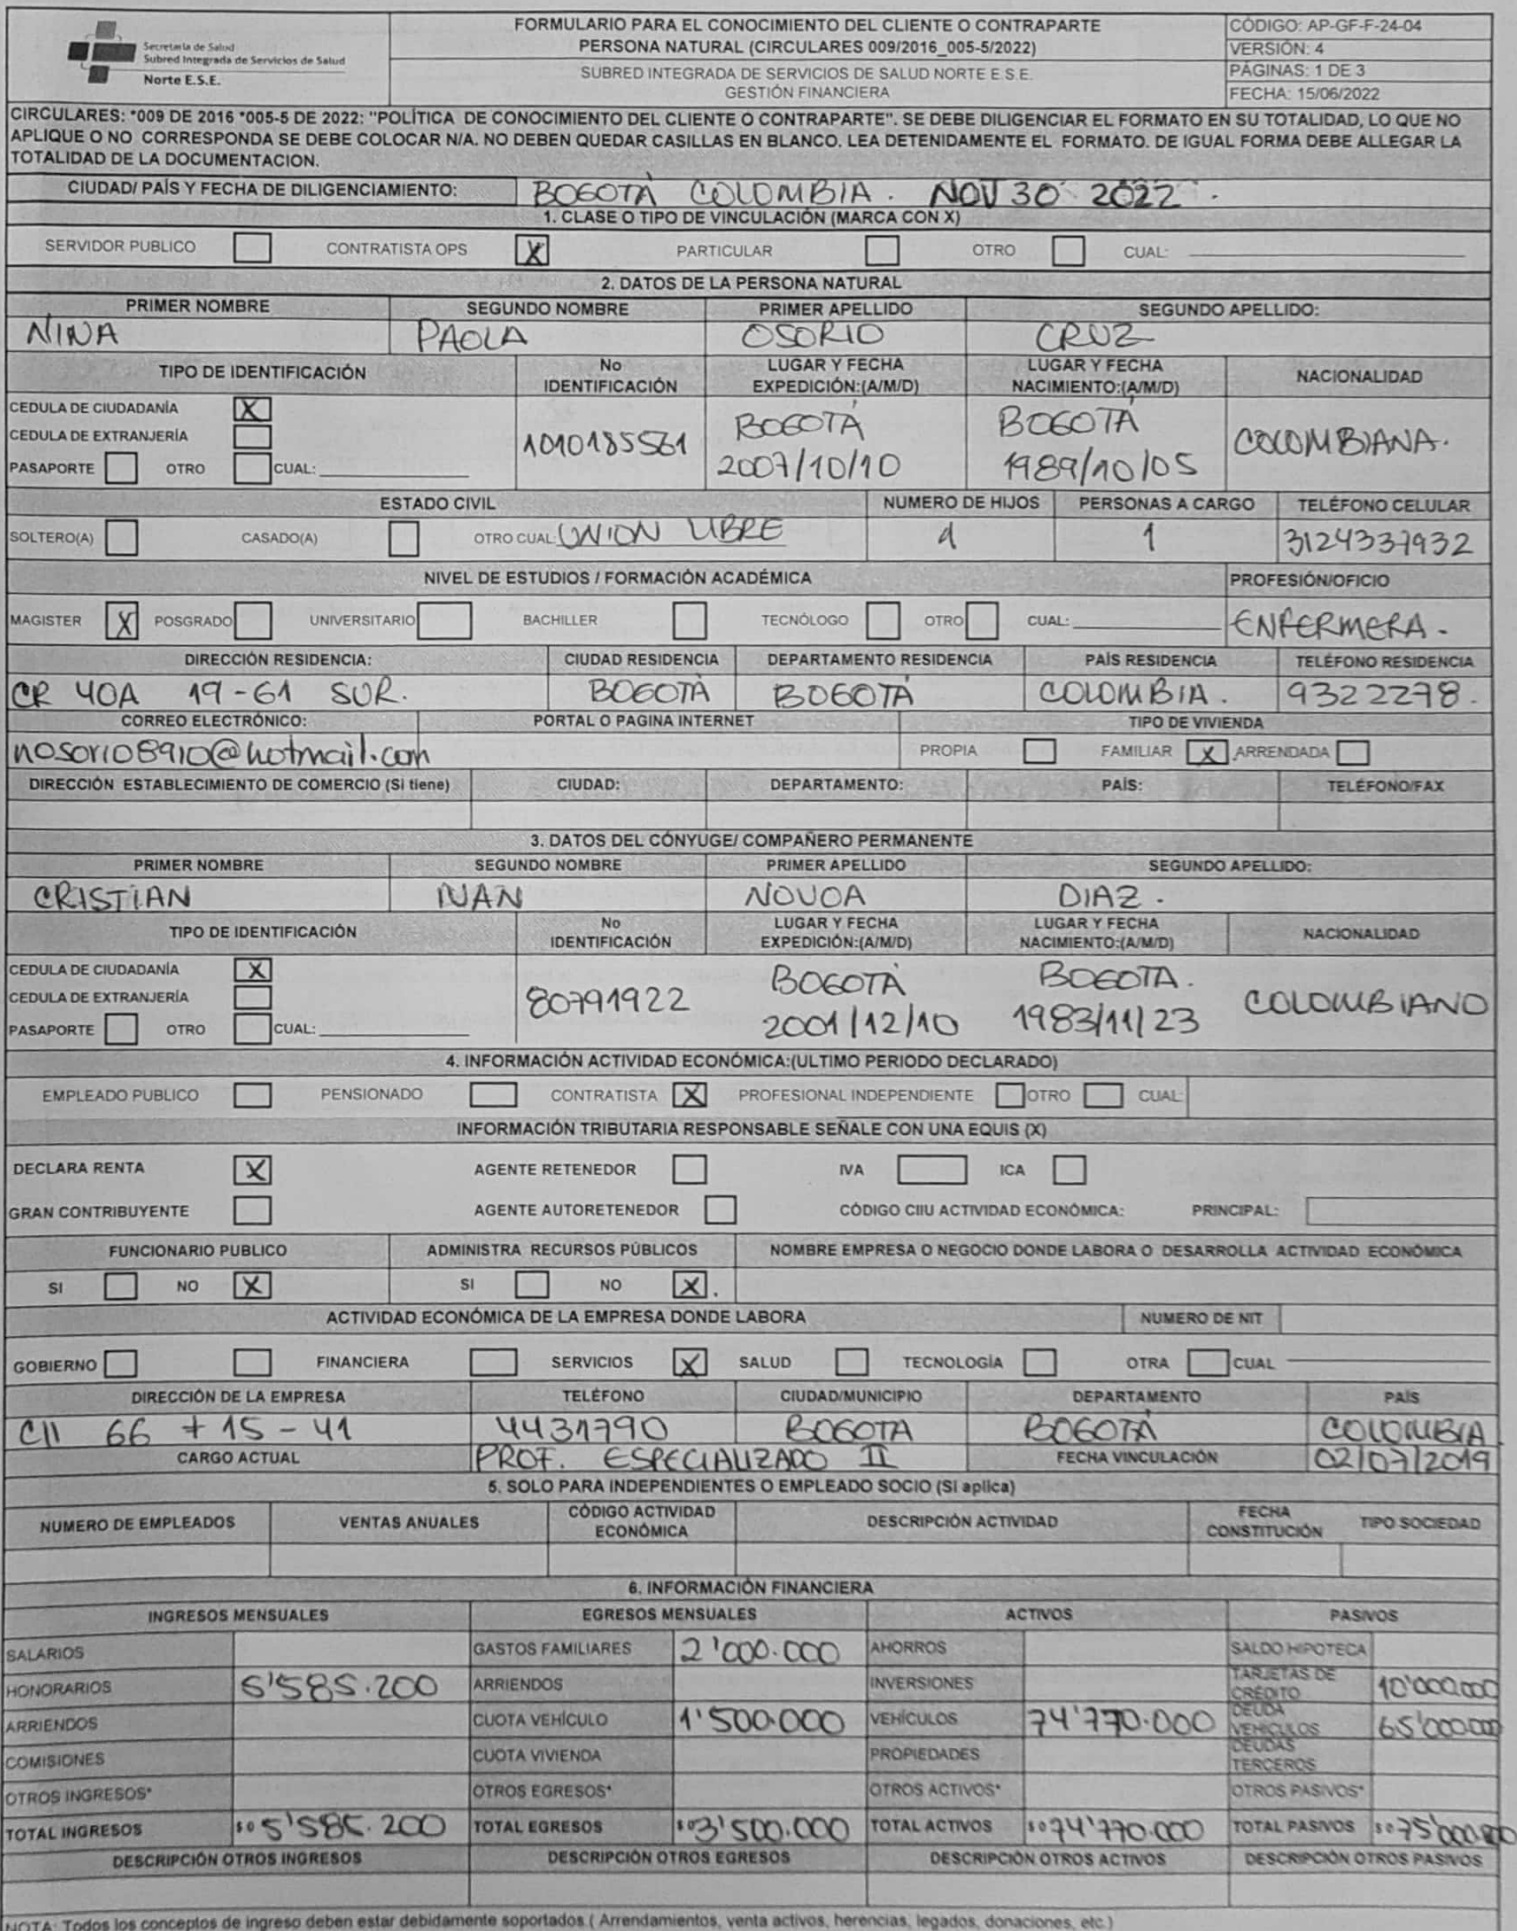 Secretaría de Salud
Subred Integrada de Servicios de Salud
Norte E.S.E.
FORMULARIO PARA EL CONOCIMIENTO DEL CLIENTE O CONTRAPARTE
PERSONA NATURAL (CIRCULARES 009/2016_005-5/2022)
SUBRED INTEGRADA DE SERVICIOS DE SALUD NORTE E.S.E.
GESTIÓN FINANCIERA
CÓDIGO: AP-GF-F-24-04
VERSIÓN: 4
PÁGINAS: 1 DE 3
FECHA: 15/06/2022
CIRCULARES: *009 DE 2016 *005-5 DE 2022: "POLÍTICA DE CONOCIMIENTO DEL CLIENTE O CONTRAPARTE". SE DEBE DILIGENCIAR EL FORMATO EN SU TOTALIDAD, LO QUE NO
APLIQUE O NO CORRESPONDA SE DEBE COLOCAR N/A. NO DEBEN QUEDAR CASILLAS EN BLANCO. LEA DETENIDAMENTE EL FORMATO. DE IGUAL FORMA DEBE ALLEGAR LA
TOTALIDAD DE LA DOCUMENTACION.
CIUDAD/ PAÍS Y FECHA DE DILIGENCIAMIENTO: BOGOTÁ COLOMBIA. NOV 30 2022.
1. CLASE O TIPO DE VINCULACIÓN (MARCA CON X)
SERVIDOR PUBLICO CONTRATISTA OPS X PARTICULAR OTRO CUAL:
2. DATOS DE LA PERSONA NATURAL
PRIMER NOMBRE SEGUNDO NOMBRE PRIMER APELLIDO SEGUNDO APELLIDO:
NINA PAOLA OSORIO CRUZ
TIPO DE IDENTIFICACIÓN No IDENTIFICACIÓN LUGAR Y FECHA EXPEDICIÓN:(A/M/D) LUGAR Y FECHA NACIMIENTO:(A/M/D) NACIONALIDAD
CEDULA DE CIUDADANÍA X
CEDULA DE EXTRANJERÍA
PASAPORTE OTRO CUAL:
1010185561 BOGOTÁ 2007/10/10 BOGOTÁ 1989/10/05 COLOMBIANA.
ESTADO CIVIL NUMERO DE HIJOS PERSONAS A CARGO TELÉFONO CELULAR
SOLTERO(A) CASADO(A) OTRO CUAL: UNION LIBRE 1 1 3124337932
NIVEL DE ESTUDIOS / FORMACIÓN ACADÉMICA PROFESIÓN/OFICIO
MAGISTER X POSGRADO UNIVERSITARIO BACHILLER TECNÓLOGO OTRO CUAL: ENFERMERA.
DIRECCIÓN RESIDENCIA: CIUDAD RESIDENCIA DEPARTAMENTO RESIDENCIA PAÍS RESIDENCIA TELÉFONO RESIDENCIA
CR 40A 19-61 SUR. BOGOTÁ BOGOTÁ COLOMBIA. 9322278.
CORREO ELECTRÓNICO: PORTAL O PAGINA INTERNET TIPO DE VIVIENDA
nosorio8910@hotmail.com PROPIA FAMILIAR X ARRENDADA
DIRECCIÓN ESTABLECIMIENTO DE COMERCIO (Si tiene) CIUDAD: DEPARTAMENTO: PAÍS: TELÉFONO/FAX
3. DATOS DEL CÓNYUGE/ COMPAÑERO PERMANENTE
PRIMER NOMBRE SEGUNDO NOMBRE PRIMER APELLIDO SEGUNDO APELLIDO:
CRISTIAN IVAN NOVOA DIAZ.
TIPO DE IDENTIFICACIÓN No IDENTIFICACIÓN LUGAR Y FECHA EXPEDICIÓN:(A/M/D) LUGAR Y FECHA NACIMIENTO:(A/M/D) NACIONALIDAD
CEDULA DE CIUDADANÍA X
CEDULA DE EXTRANJERÍA
PASAPORTE OTRO CUAL:
80791922 BOGOTÁ 2001/12/10 BOGOTA. 1983/11/23 COLOMBIANO
4. INFORMACIÓN ACTIVIDAD ECONÓMICA:(ULTIMO PERIODO DECLARADO)
EMPLEADO PUBLICO PENSIONADO CONTRATISTA X PROFESIONAL INDEPENDIENTE OTRO CUAL:
INFORMACIÓN TRIBUTARIA RESPONSABLE SEÑALE CON UNA EQUIS (X)
DECLARA RENTA X AGENTE RETENEDOR IVA ICA
GRAN CONTRIBUYENTE AGENTE AUTORETENEDOR CÓDIGO CIIU ACTIVIDAD ECONÓMICA: PRINCIPAL:
FUNCIONARIO PUBLICO ADMINISTRA RECURSOS PÚBLICOS NOMBRE EMPRESA O NEGOCIO DONDE LABORA O DESARROLLA ACTIVIDAD ECONÓMICA
SI NO X SI NO X.
ACTIVIDAD ECONÓMICA DE LA EMPRESA DONDE LABORA NUMERO DE NIT
GOBIERNO FINANCIERA SERVICIOS X SALUD TECNOLOGÍA OTRA CUAL
DIRECCIÓN DE LA EMPRESA TELÉFONO CIUDAD/MUNICIPIO DEPARTAMENTO PAÍS
Cll 66 # 15-41 4431790 BOGOTA BOGOTÁ COLOMBIA
CARGO ACTUAL PROF. ESPECIALIZADO II FECHA VINCULACIÓN 02/07/2019
5. SOLO PARA INDEPENDIENTES O EMPLEADO SOCIO (Si aplica)
NUMERO DE EMPLEADOS VENTAS ANUALES CÓDIGO ACTIVIDAD ECONÓMICA DESCRIPCIÓN ACTIVIDAD FECHA CONSTITUCIÓN TIPO SOCIEDAD
6. INFORMACIÓN FINANCIERA
INGRESOS MENSUALES EGRESOS MENSUALES ACTIVOS PASIVOS
SALARIOS GASTOS FAMILIARES 2'000.000 AHORROS SALDO HIPOTECA
HONORARIOS 5'585.200 ARRIENDOS INVERSIONES TARJETAS DE CRÉDITO 10'000.000
ARRIENDOS CUOTA VEHÍCULO 1'500.000 VEHÍCULOS 74'770.000 DEUDA VEHICULOS 65'000.000
COMISIONES CUOTA VIVIENDA PROPIEDADES DEUDAS TERCEROS
OTROS INGRESOS* OTROS EGRESOS* OTROS ACTIVOS* OTROS PASIVOS*
TOTAL INGRESOS $0 5'585.200 TOTAL EGRESOS $0 3'500.000 TOTAL ACTIVOS $0 74'770.000 TOTAL PASIVOS $0 75'000.000
DESCRIPCIÓN OTROS INGRESOS DESCRIPCIÓN OTROS EGRESOS DESCRIPCIÓN OTROS ACTIVOS DESCRIPCIÓN OTROS PASIVOS
NOTA: Todos los conceptos de ingreso deben estar debidamente soportados ( Arrendamientos, venta activos, herencias, legados, donaciones, etc.)